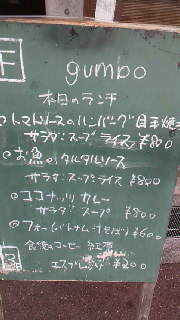 gumbo
本日のランチ
トマトソースのハンバーグ目玉焼
サラダ・スープ ライス ¥800
お魚のタルタルソース
サラダ・スープ ライス ¥800
ココナッツ カレー
サラダ スープ ¥800
フォー(ベトナム ¥600
食後のコーヒー 紅茶
エスプレッソ ¥200